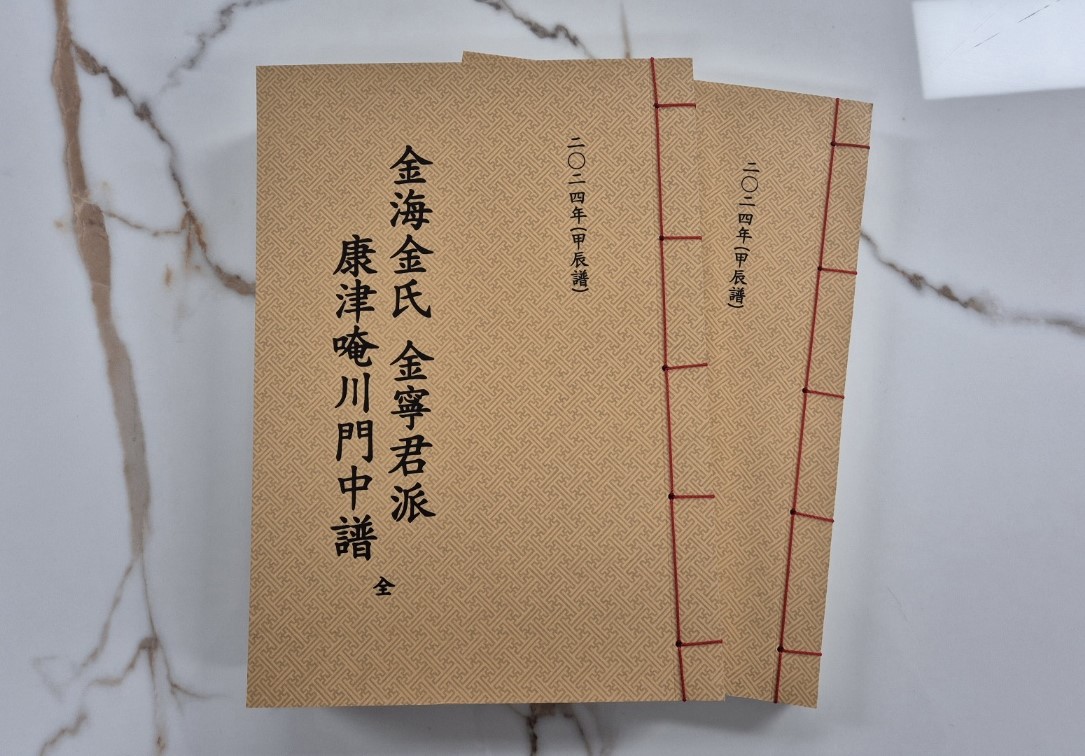 二〇二四年(甲辰譜)
金海金氏 金寧君派
康津唵川門中譜
全
二〇二四年(甲辰譜)